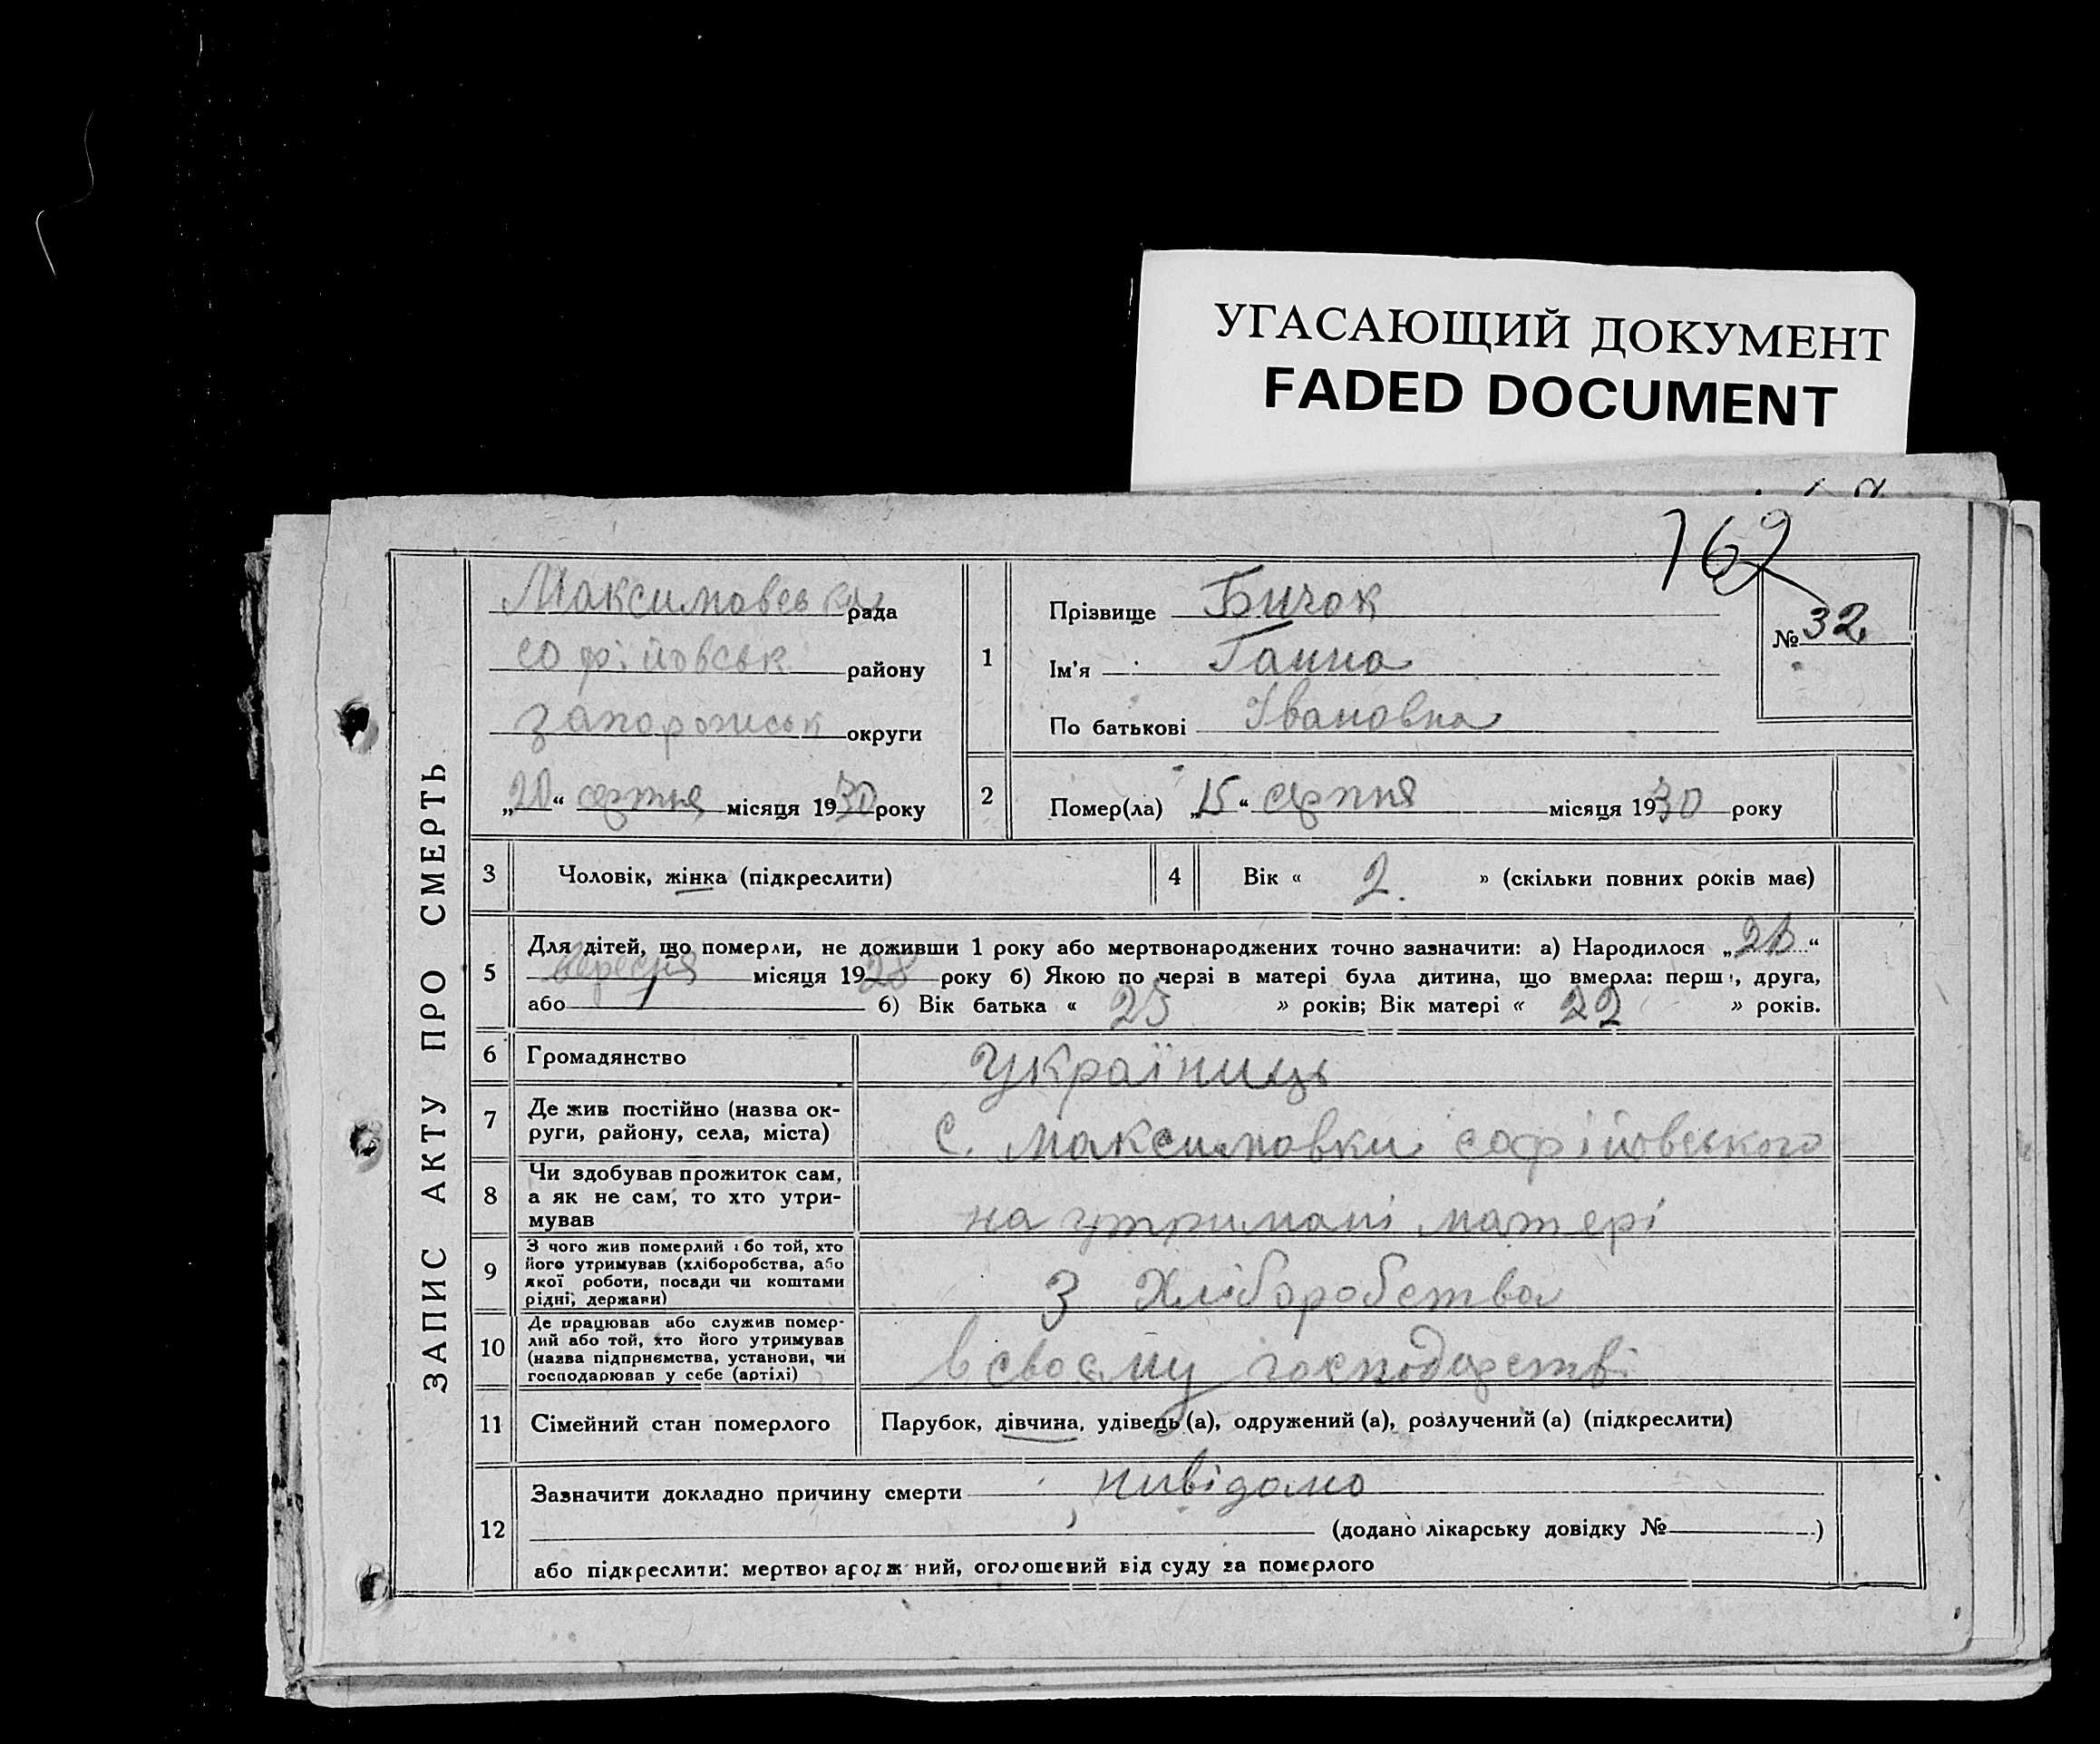 УГАСАЮЩИЙ ДОКУМЕНТ
FADED DOCUMENT
162
ЗАПИС АКТУ ПРО СМЕРТЬ
Максимовська рада
софійовськ району
запорожськ округи
„20“ серпня місяця 1930 року
1
Прізвище Бичок
Ім'я Ганна
По батькові Івановна
№ 32
2
Помер(ла) „15“ серпня місяця 1930 року
3 Чоловік, жінка (підкреслити)
4 Вік « 2. » (скільки повних років має)
5
Для дітей, що померли, не доживши 1 року або мертвонароджених точно зазначити: а) Народилося „ “
вересня місяця 1928 року б) Якою по черзі в матері була дитина, що вмерла: перш , друга,
або 1 б) Вік батька « 25 » років; Вік матері « 22 » років.
6 Громадянство Україниць
7 Де жив постійно (назва ок-
руги, району, села, міста) с. максимовки софійовського
8 Чи здобував прожиток сам,
а як не сам, то хто утри-
мував на утримані матері
9 З чого жив померлий або той, хто
його утримував (хліборобства, або
якої роботи, посади чи коштами
рідні, держави) З Хліборобства
10 Де працював або служив помер-
лий або той, хто його утримував
(назва підприємства, установи, чи
господарював у себе (артілі) в своєму господарстві
11 Сімейний стан померлого Парубок, дівчина, удівець (а), одружений (а), розлучений (а) (підкреслити)
12
Зазначити докладно причину смерти нивідомо
(додано лікарську довідку № )
або підкреслити: мертвонароджений, оголошений від суду за померлого